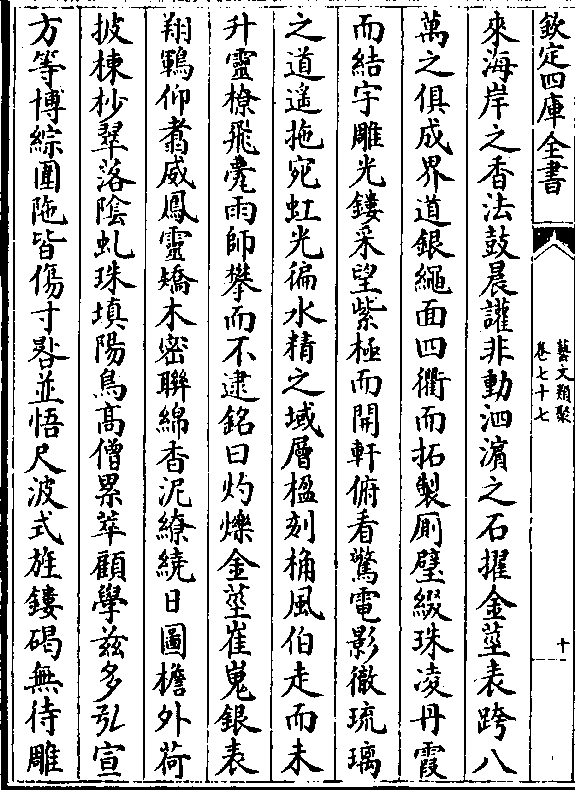 欽定四庫全書
藝文類聚
卷七十七
十
來海岸之香法鼓晨讙非動泗濵之石擢金莖表跨八
萬之俱成界道銀繩面四衢而拓製厠璧綴珠凌丹霞
而結宇雕光鏤采望紫極而開軒俯看驚電影徹琉璃
之道遙拖宛虹光徧水精之域層楹刻桷風伯走而未
升靈橑飛甍雨師攀而不逮銘曰灼爍金莖崔嵬銀表
翔鶤仰翥威鳳靈矯木密聨綿香泥繚繞日圖檐外荷
披棟杪翠落陰虬珠填陽鳥高僧累萃顧學兹多弘宣
方等博綜圍陁皆傷寸晷並悟尺波式旌鏤碣無待雕